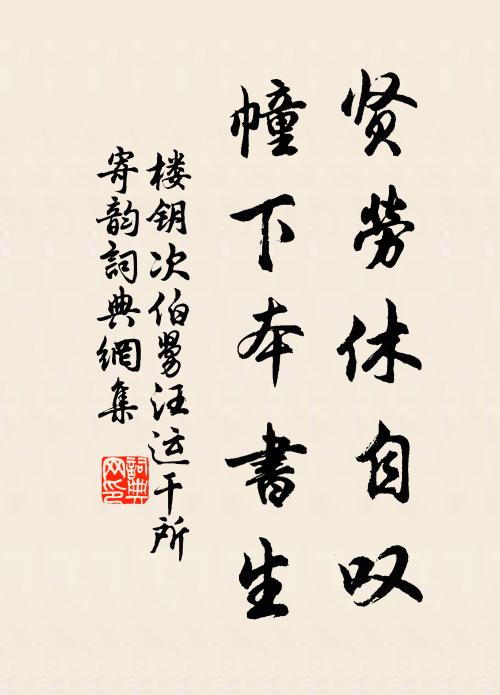 贤勞休自叹
幢下本書生
楼钥次伯舅汪运干所
寄韵詞典網集
詞典
网印